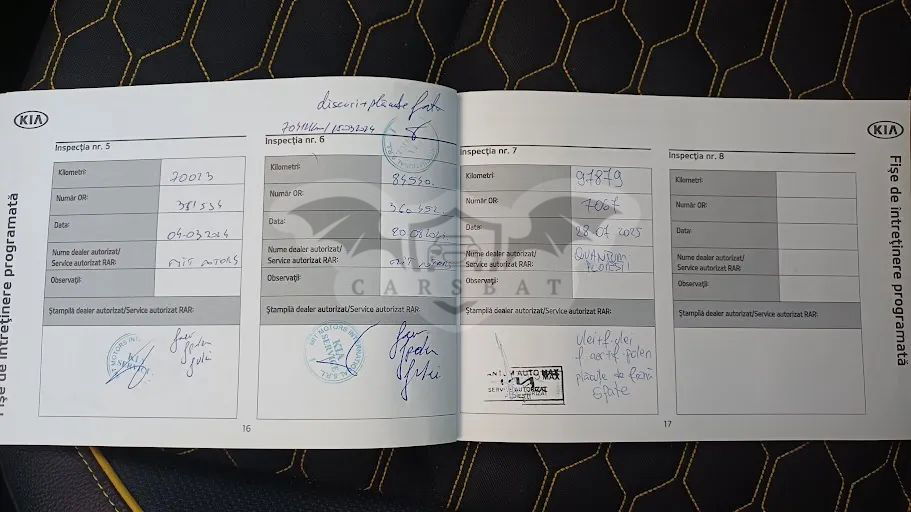 KIA
Fișe de întreținere programată
discuri + plăcuțe fata
Inspecția nr. 5
Kilometri: 70023
Număr OR: 351534
Data: 04-03.2024
Nume dealer autorizat/
Service autorizat RAR: MIT MOTORS
Observații:
Ștampilă dealer autorizat/Service autorizat RAR:
MOTORS INT.
KIA
SERVICE
16
Inspecția nr. 6
Kilometri: 84540
Număr OR: 360452
Data:
Nume dealer autorizat/
Service autorizat RAR: MIT
Observații:
Ștampilă dealer autorizat/Service autorizat RAR:
MIT MOTORS INTERNATIONAL S.R.L.
KIA
SERVICE
Inspecția nr. 7
Kilometri: 97879
Număr OR: 7067
Data: 28 07 2025
Nume dealer autorizat/
Service autorizat RAR: QUANTUM
PLOIESTI
Observații:
Ștampilă dealer autorizat/Service autorizat RAR:
AUTO MAX
SERVICE AUTORIZAT
PLOIESTI
ulei+f. ulei
f. aer+f. polen
plăcuțe de frână
spate
17
Inspecția nr. 8
Kilometri:
Număr OR:
Data:
Nume dealer autorizat/
Service autorizat RAR:
Observații:
Ștampilă dealer autorizat/Service autorizat RAR:
KIA
Fișe de întreținere programată
CARSBAT